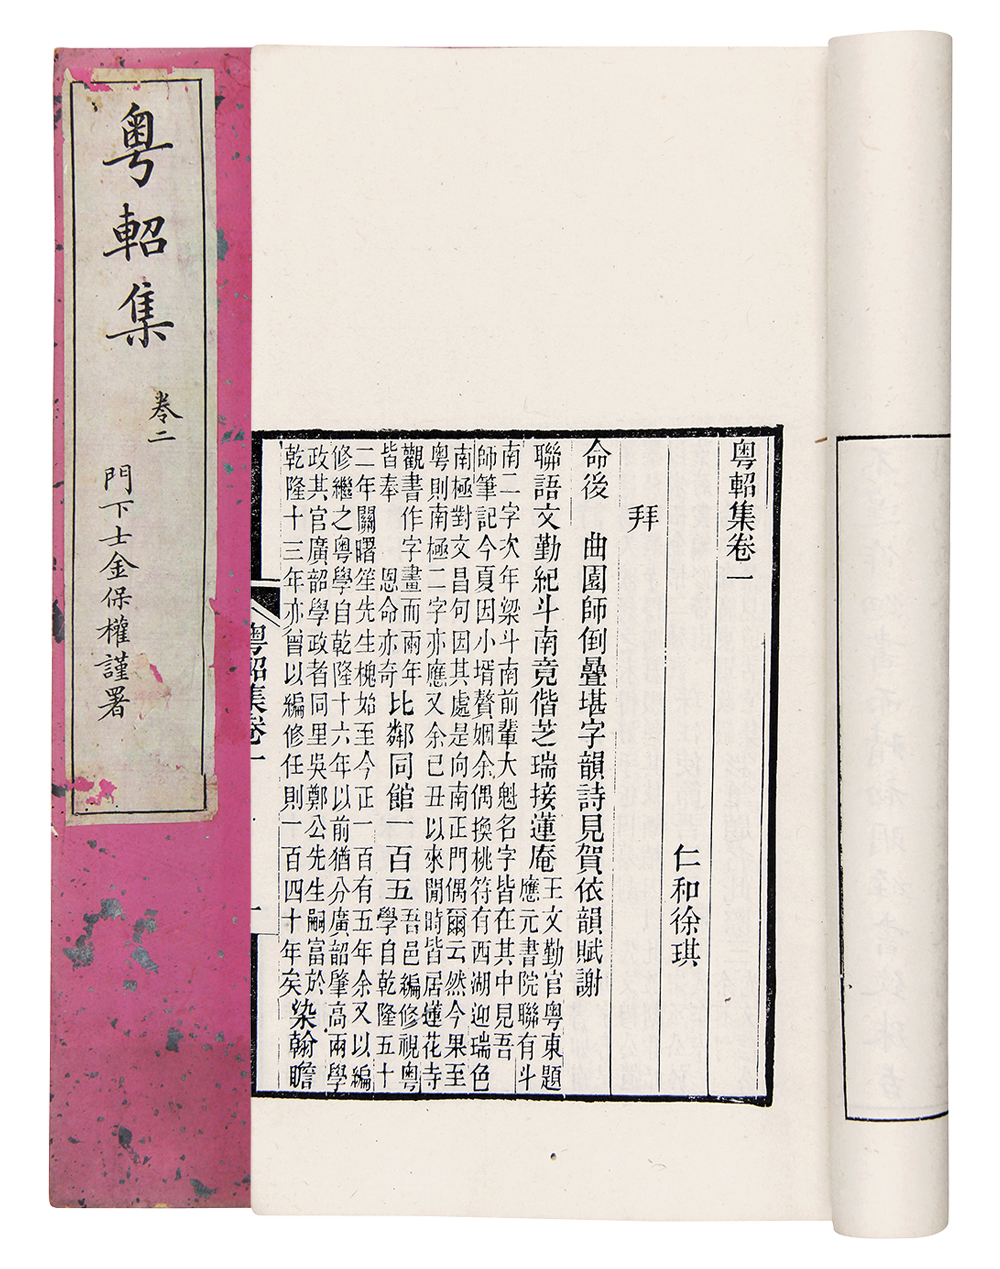 粵軺集
卷二
門下士金保權謹署
粵軺集卷一
仁和徐琪
拜
命後　曲園師倒疊堪字韻詩見賀依韻賦謝
聯語文勤紀斗南竟偕芝瑞接蓮庵
王文勤官粵東題
應元書院聯有斗
南二字次年梁斗南前輩大魁名字皆在其中見吾
師筆記今夏因小壻贅姻余偶換桃符有西湖迎瑞色
南極對文昌句因其處是向南正門偶爾云然今果至
粵則南極二字亦應又余已丑以來閒時皆居蓮花寺
觀書作字畫而兩年
皆奉　恩命亦奇
比鄰同館一百五
吾邑編修視粵
學自乾隆五十
二年關曙笙先生槐始至今正一百有五年余又以編
修繼之粵學自乾隆十六年以前猶分廣韶肇高兩學
政其官廣韶學政者同里吳鄭公先生嗣富於
乾隆十三年亦曾以編修任則一百四十年矣
染翰瞻
粵軺集卷一
一